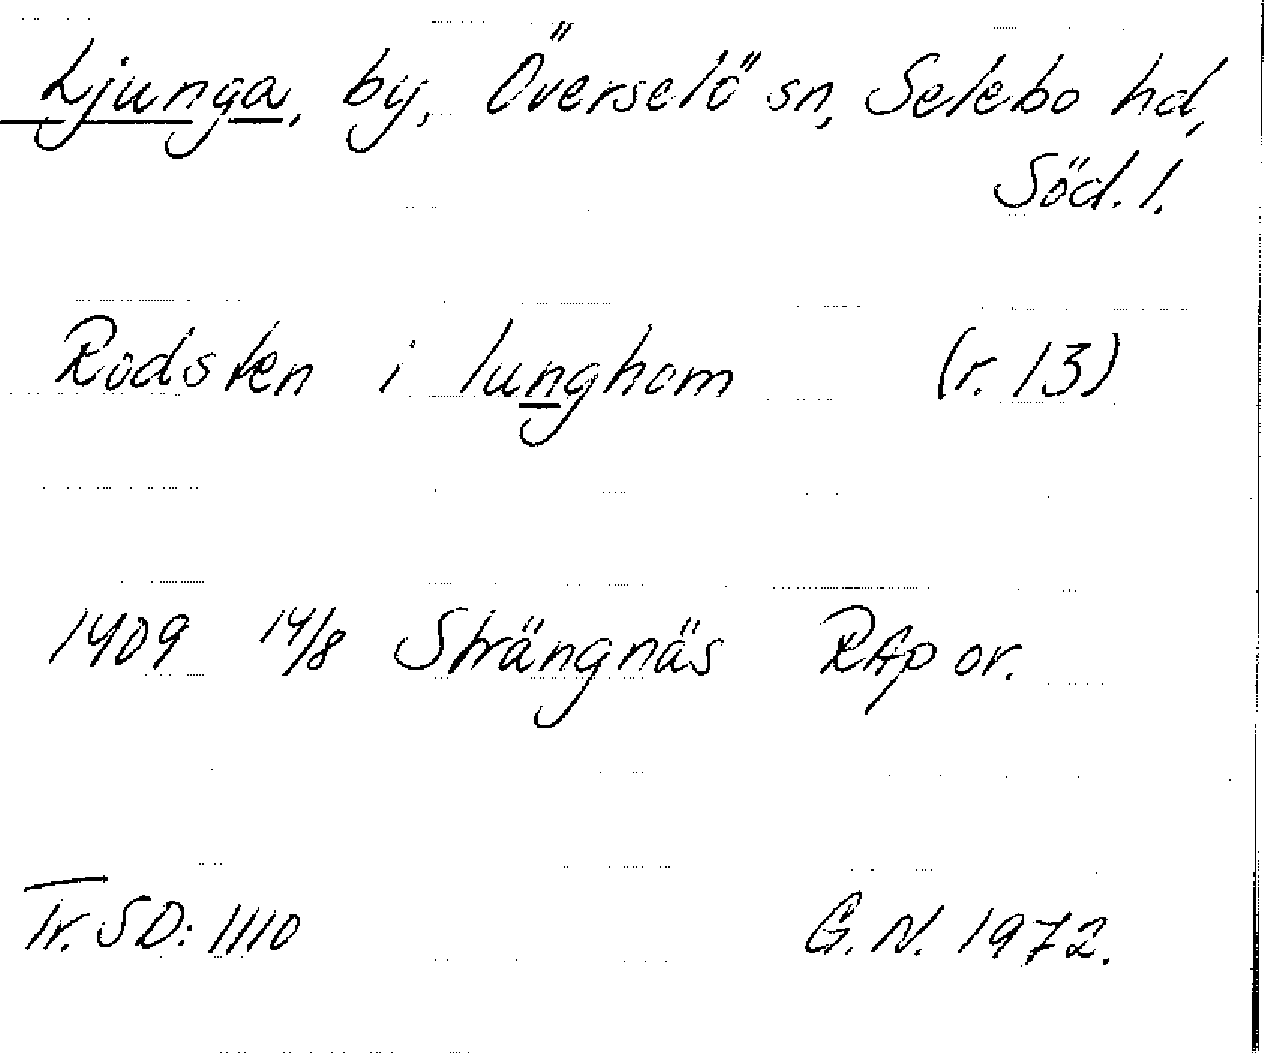 Ljunga, by, Överselö sn, Selebo hd,
Söd. l.
Rodsten i lunghom (r. 13)
1409 14/8 Strängnäs RAp or.
Tr. SD: 1110 G. N. 1972.